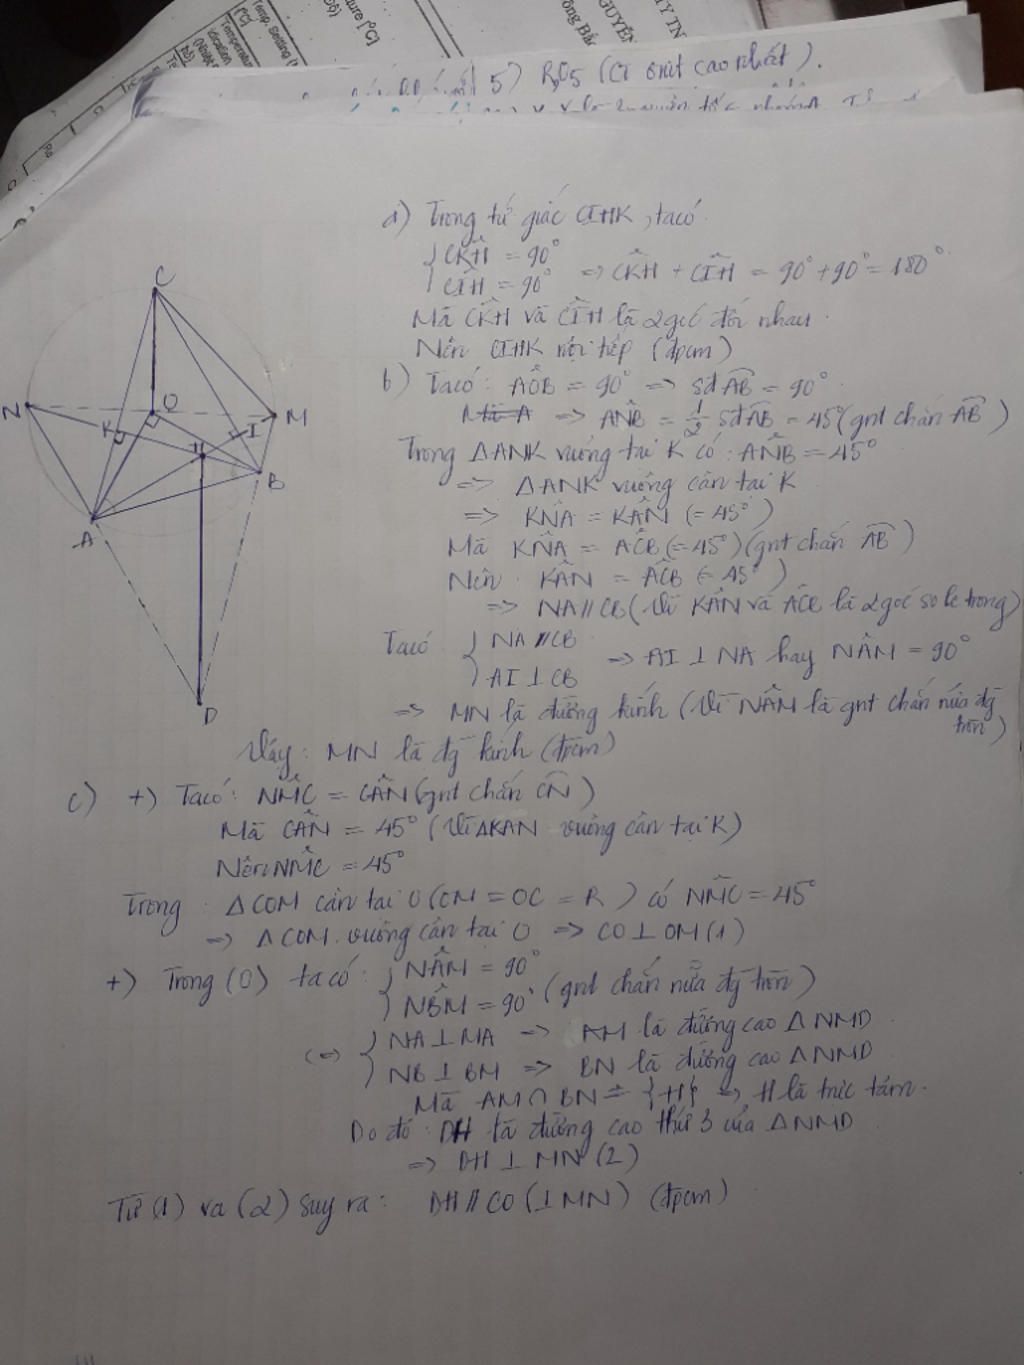 Temp. Setting
(°C)
Temperatu
5) R₂O₅ (Cr oxit cao nhất).
a) Trong tứ giác CIHK, ta có
{ CK̂H = 90°
{ CÎH = 90° => CK̂H + CÎH = 90° + 90° = 180°
Mà CK̂H và CÎH là 2 góc đối nhau.
Nên CIHK nội tiếp (đpcm)
b) Ta có: AÔB = 90° => sđ AB = 90°
=> AN̂B = 1/2 sđ AB = 45° (gnt chắn AB)
Trong ΔANK vuông tại K có: AN̂B = 45°
=> ΔANK vuông cân tại K
=> KN̂A = KÂN (= 45°)
Mà KN̂A = AĈB (= 45°) (gnt chắn AB)
Nên KÂN = AĈB (= 45°)
=> NA // CB (Vì KÂN và AĈB là 2 góc so le trong)
Ta có { NA // CB
{ AI ⊥ CB => AI ⊥ NA hay NÂM = 90°
=> MN là đường kính (Vì NÂM là gnt chắn nửa đg
tròn)
Vậy: MN là đg kính (đpcm)
c) +) Ta có: NM̂C = CÂN (gnt chắn CN)
Mà CÂN = 45° (Vì ΔKAN vuông cân tại K)
Nên NM̂C = 45°
Trong ΔCOM cân tại O (OM = OC = R) có NM̂C = 45°
=> ΔCOM vuông cân tại O => CO ⊥ OM (1)
+) Trong (O) ta có: { NÂM = 90°
{ NB̂M = 90° (gnt chắn nửa đg tròn)
(=> { NA ⊥ MA => AM là đường cao ΔNMD
{ NB ⊥ BM => BN là đường cao ΔNMD
Mà AM ∩ BN = {H} => H là trực tâm.
Do đó: DH là đường cao thứ 3 của ΔNMD
=> DH ⊥ MN (2)
Từ (1) và (2) suy ra: DH // CO (⊥ MN) (đpcm)
C
N
O
M
K
H
I
B
A
D